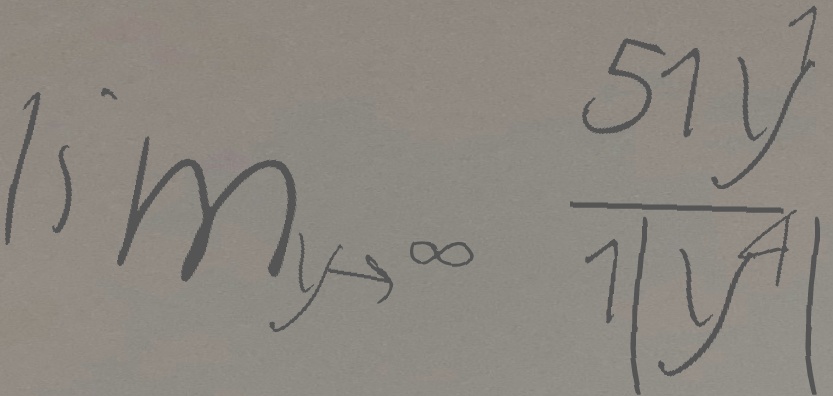 lim_{y→∞} \frac{51y^1}{1|y^4|}